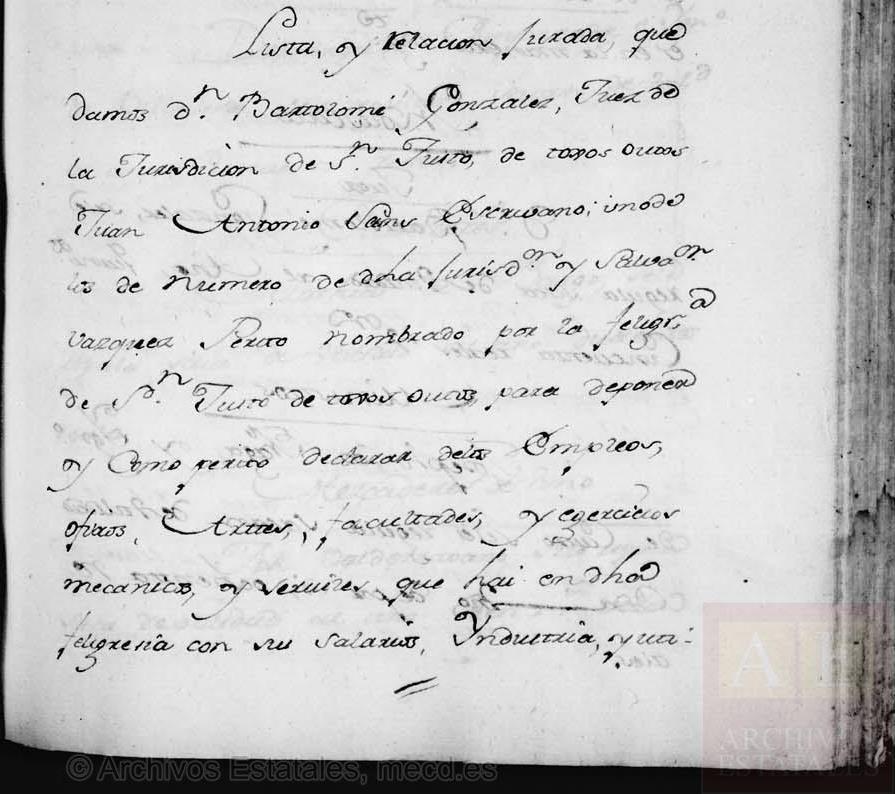 Lista, y Relacion Jurada, que
damos dn. Bartolomé Gonzalez, Juez de
la Jurisdicion de Sn. Justo, de toxos outos
Juan Antonio Sans Escriuano; uno de
los de numero de dha Jurisdon. y Saluaor.
Vazquez Perito nombrado por la feligra.
de Sn. Justo de toxos outos, para deponer
y Como perito declarar delos Empleos,
ofizios, Arttes, facultades, y egercicios
mecanicos, y seruiles que hai en dha
feligresia con sus salarios, Yndustria, y uti-
© Archivos Estatales, mecd.es
A E
ARCHIVOS
ESTATALES